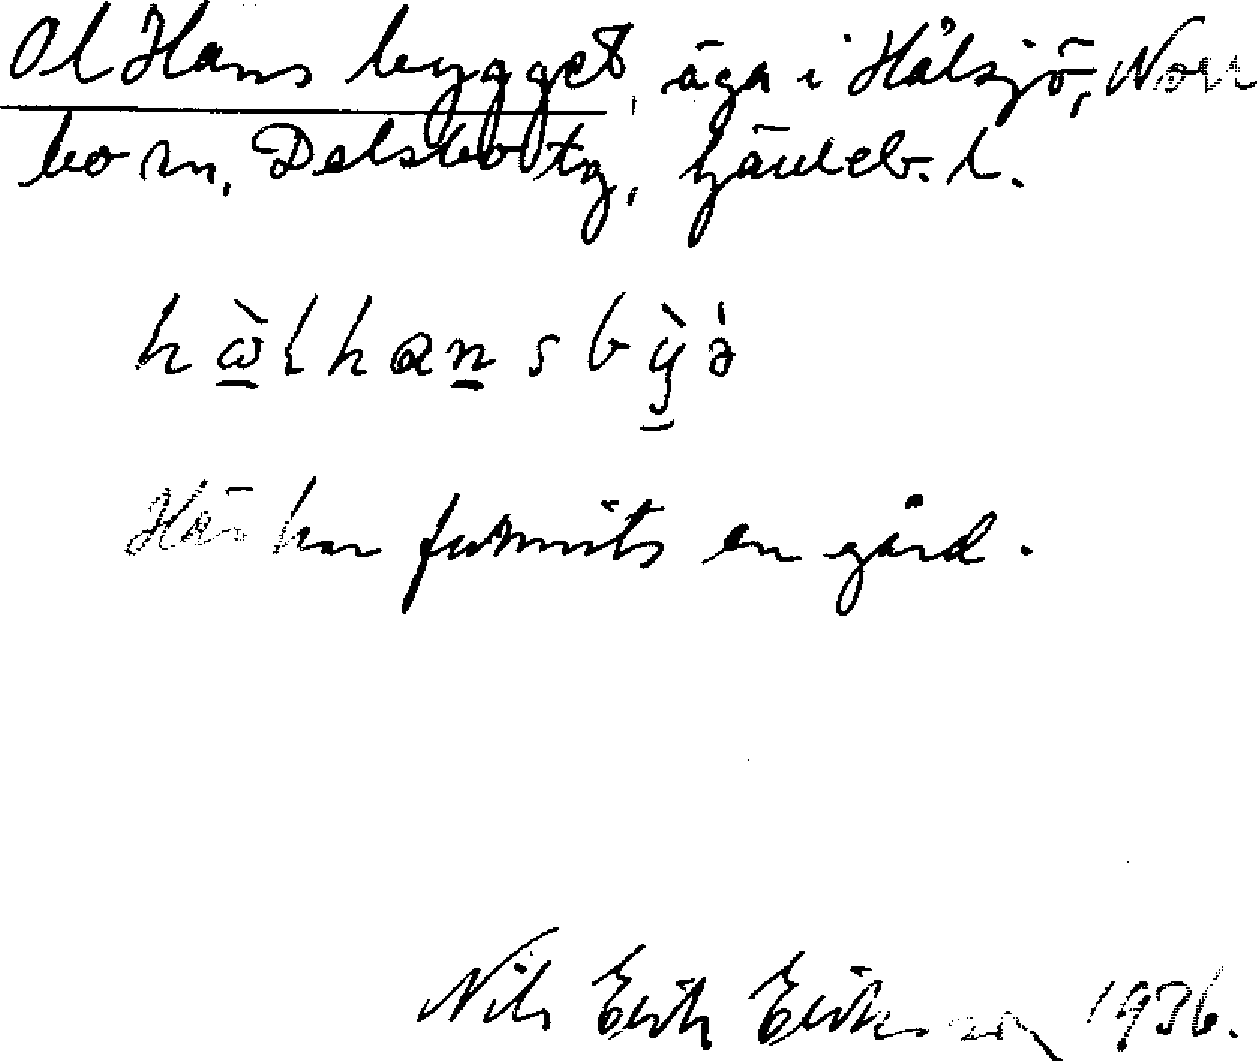 Ol Hansbygget, äga i Hålsjö, Norr
bo sn, Delsbo tg, Gävleb. l.
hὼ̲lhan̲sbỳ̲ə̀
Här har funnits en gård.
Nils Erik Eriksson 1936.